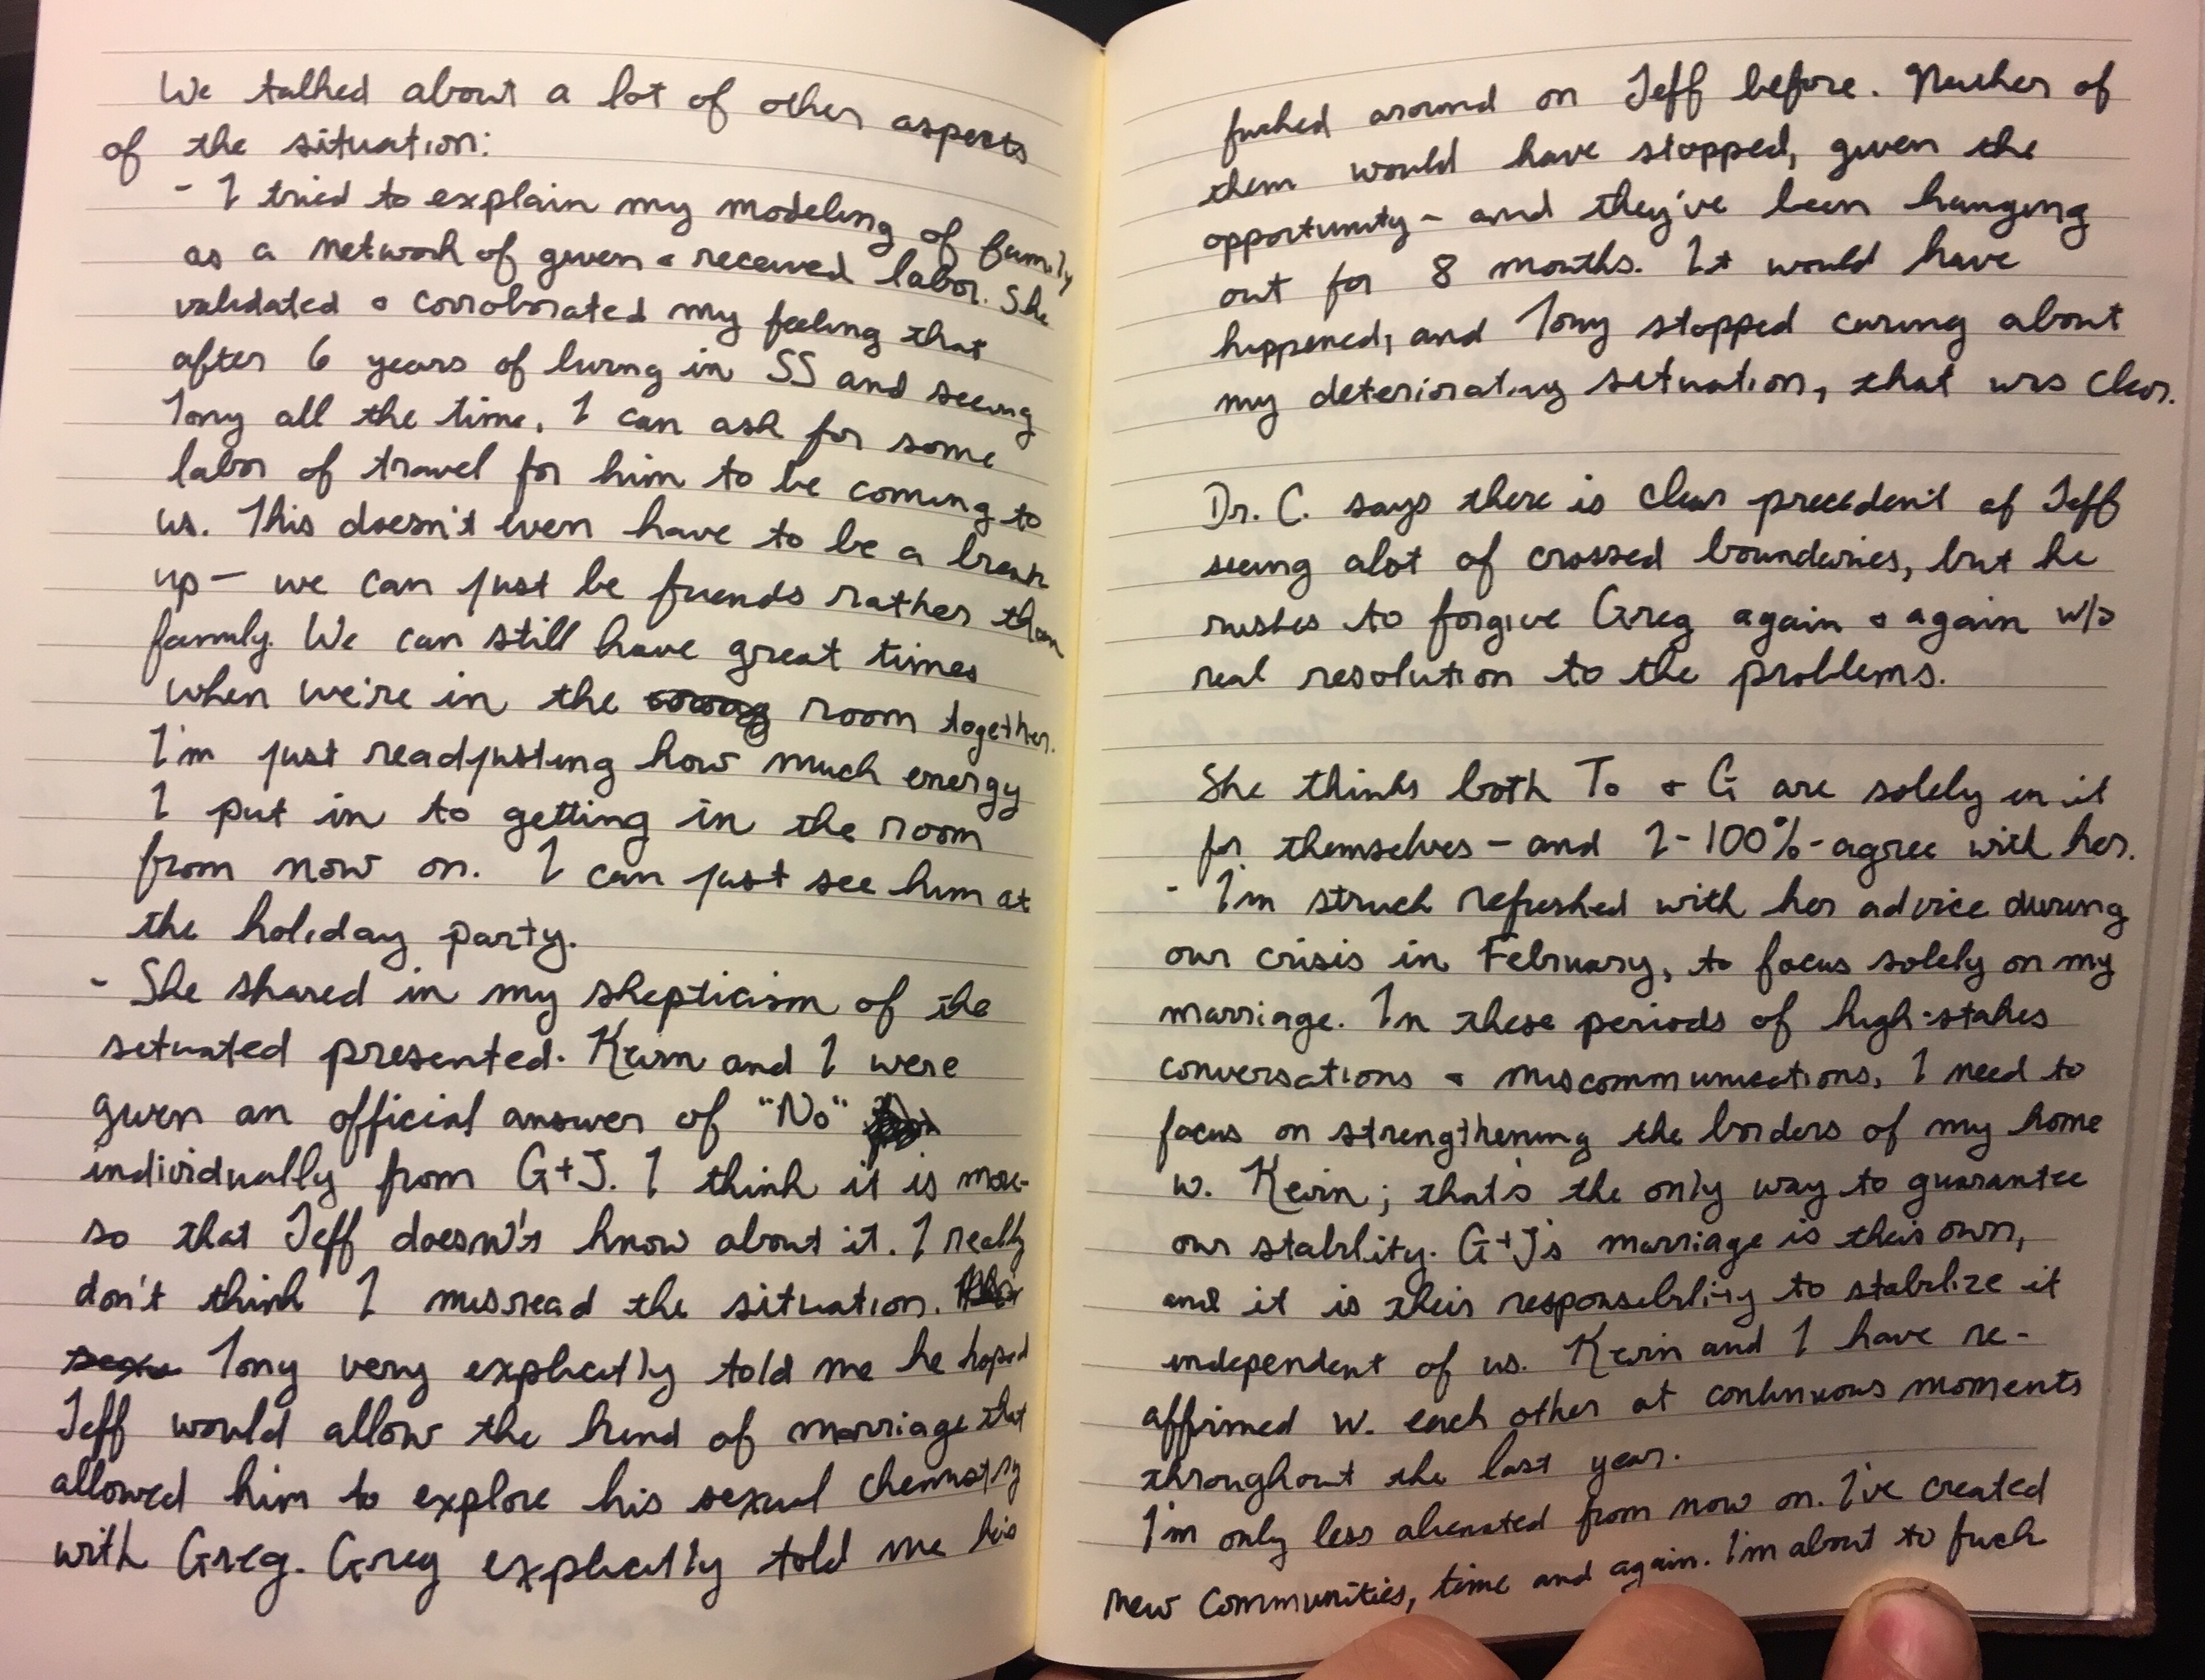 We talked about a lot of other aspects
of the situation:
- I tried to explain my modeling of family
as a network of given & received labor. She
validated & corroborated my feeling that
after 6 years of living in SS and seeing
Tony all the time, I can ask for some
labor of travel for him to be coming to
us. This doesn't even have to be a break
up - we can just be friends rather than
family. We can still have great times
when we're in the room together.
I'm just readjusting how much energy
I put in to getting in the room
from now on. I can just see him at
the holiday party.
- She shared in my skepticism of the
situated presented. Kevin and I were
given an official answer of "No"
individually from G+J. I think it is more-
so that Jeff doesn't know about it. I really
don't think I misread the situation.
Tony very explicitly told me he hoped
Jeff would allow the kind of marriage that
allowed him to explore his sexual chemistry
with Greg. Greg explicitly told me he's
fucked around on Jeff before. Neither of
them would have stopped, given the
opportunity - and they've been hanging
out for 8 months. It would have
happened, and Tony stopped caring about
my deteriorating situation, that was clear.
Dr. C. says there is clear precedent of Jeff
seeing alot of crossed bounderies, but he
rushes to forgive Greg again & again w/o
real resolution to the problems.
She thinks both To & G are solely in it
for themselves - and I - 100% - agree with her.
- I'm struck refreshed with her advice during
our crisis in February, to focus solely on my
marriage. In these periods of high-stakes
conversations & miscommunications, I need to
focus on strengthening the borders of my home
w. Kevin; that's the only way to guarantee
our stability. G+J's marriage is their own,
and it is their responsibility to stabilize it
independent of us. Kevin and I have re-
affirmed w. each other at continuous moments
throughout the last year.
I'm only less alienated from now on. I've created
new communities, time and again. I'm about to fuck